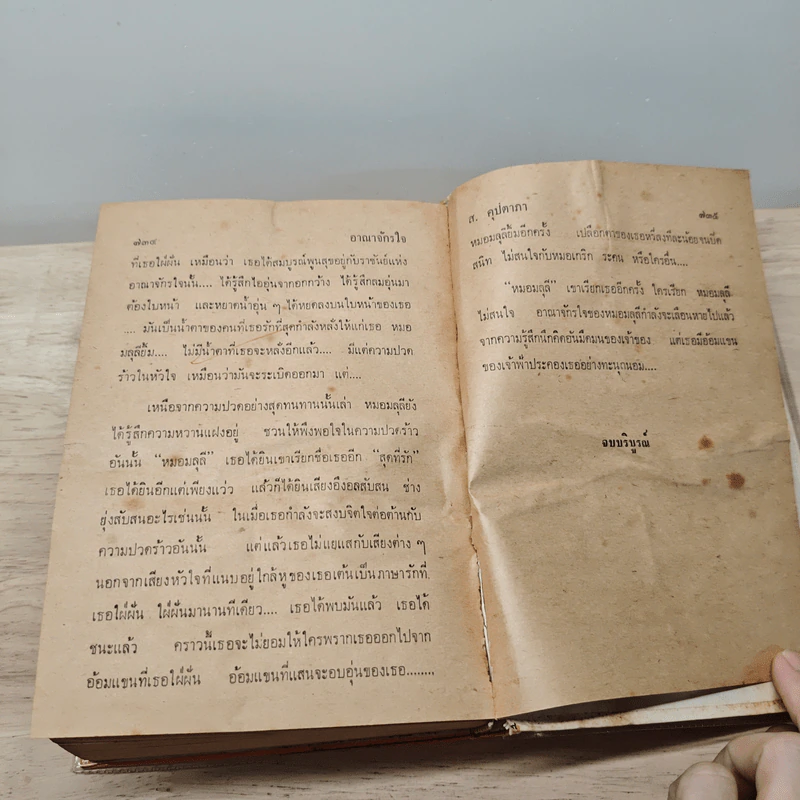 ๗๓๔ อาณาจักรใจ
ที่เธอใฝ่ฝัน เหมือนว่า เธอได้สมบูรณ์พูนสุขอยู่กับราชันย์แห่ง
อาณาจักรใจนั้น.... ได้รู้สึกไออุ่นจากอกกว้าง ได้รู้สึกลมอุ่นมา
ต้องใบหน้า และหยาดน้ำอุ่น ๆ ได้หยดลงบนใบหน้าของเธอ
.... มันเป็นน้ำตาของคนที่เธอรักที่สุดกำลังหลั่งให้แก่เธอ หมอ
มลุลียิ้ม.... ไม่มีน้ำตาที่เธอจะหลั่งอีกแล้ว.... มีแต่ความปวด
ร้าวในหัวใจ เหมือนว่ามันจะระเบิดออกมา แต่....
เหนือจากความปวดอย่างสุดทนทานนั้นเล่า หมอมลุลียัง
ได้รู้สึกความหวานแฝงอยู่ ชวนให้พึงพอใจในความปวดร้าว
อันนั้น “หมอมลุลี” เธอได้ยินเขาเรียกชื่อเธออีก “สุดที่รัก”
เธอได้ยินอีกแต่เพียงแว่ว แล้วก็ได้ยินเสียงอึงอลสับสน ช่าง
ยุ่งสับสนอะไรเช่นนั้น ในเมื่อเธอกำลังจะสงบจิตใจต่อต้านกับ
ความปวดร้าวอันนั้น แต่แล้วเธอไม่แยแสกับเสียงต่าง ๆ
นอกจากเสียงหัวใจที่แนบอยู่ใกล้หูของเธอเต้นเป็นภาษารักที่
เธอใฝ่ฝัน ใฝ่ฝันมานานทีเดียว.... เธอได้พบมันแล้ว เธอได้
ชนะแล้ว คราวนี้เธอจะไม่ยอมให้ใครพรากเธอออกไปจาก
อ้อมแขนที่เธอใฝ่ฝัน อ้อมแขนที่แสนจะอบอุ่นของเธอ........
ส. คุปตาภา ๗๓๕
หมอมลุลียิ้มอีกครั้ง เปลือกตาของเธอหรี่ลงทีละน้อยจนปิด
สนิท ไม่สนใจกับหมอเกริก ระคน หรือใครอื่น....
“หมอมลุลี” เขาเรียกเธออีกครั้ง ใครเรียก หมอมลุลี
ไม่สนใจ อาณาจักรใจของหมอมลุลีกำลังจะเลือนหายไปแล้ว
จากความรู้สึกนึกคิดอันมืดมนของเจ้าของ แต่เธอมีอ้อมแขน
ของเจ้าฟ้าประคองเธออย่างทะนุถนอม....
จบบริบูรณ์